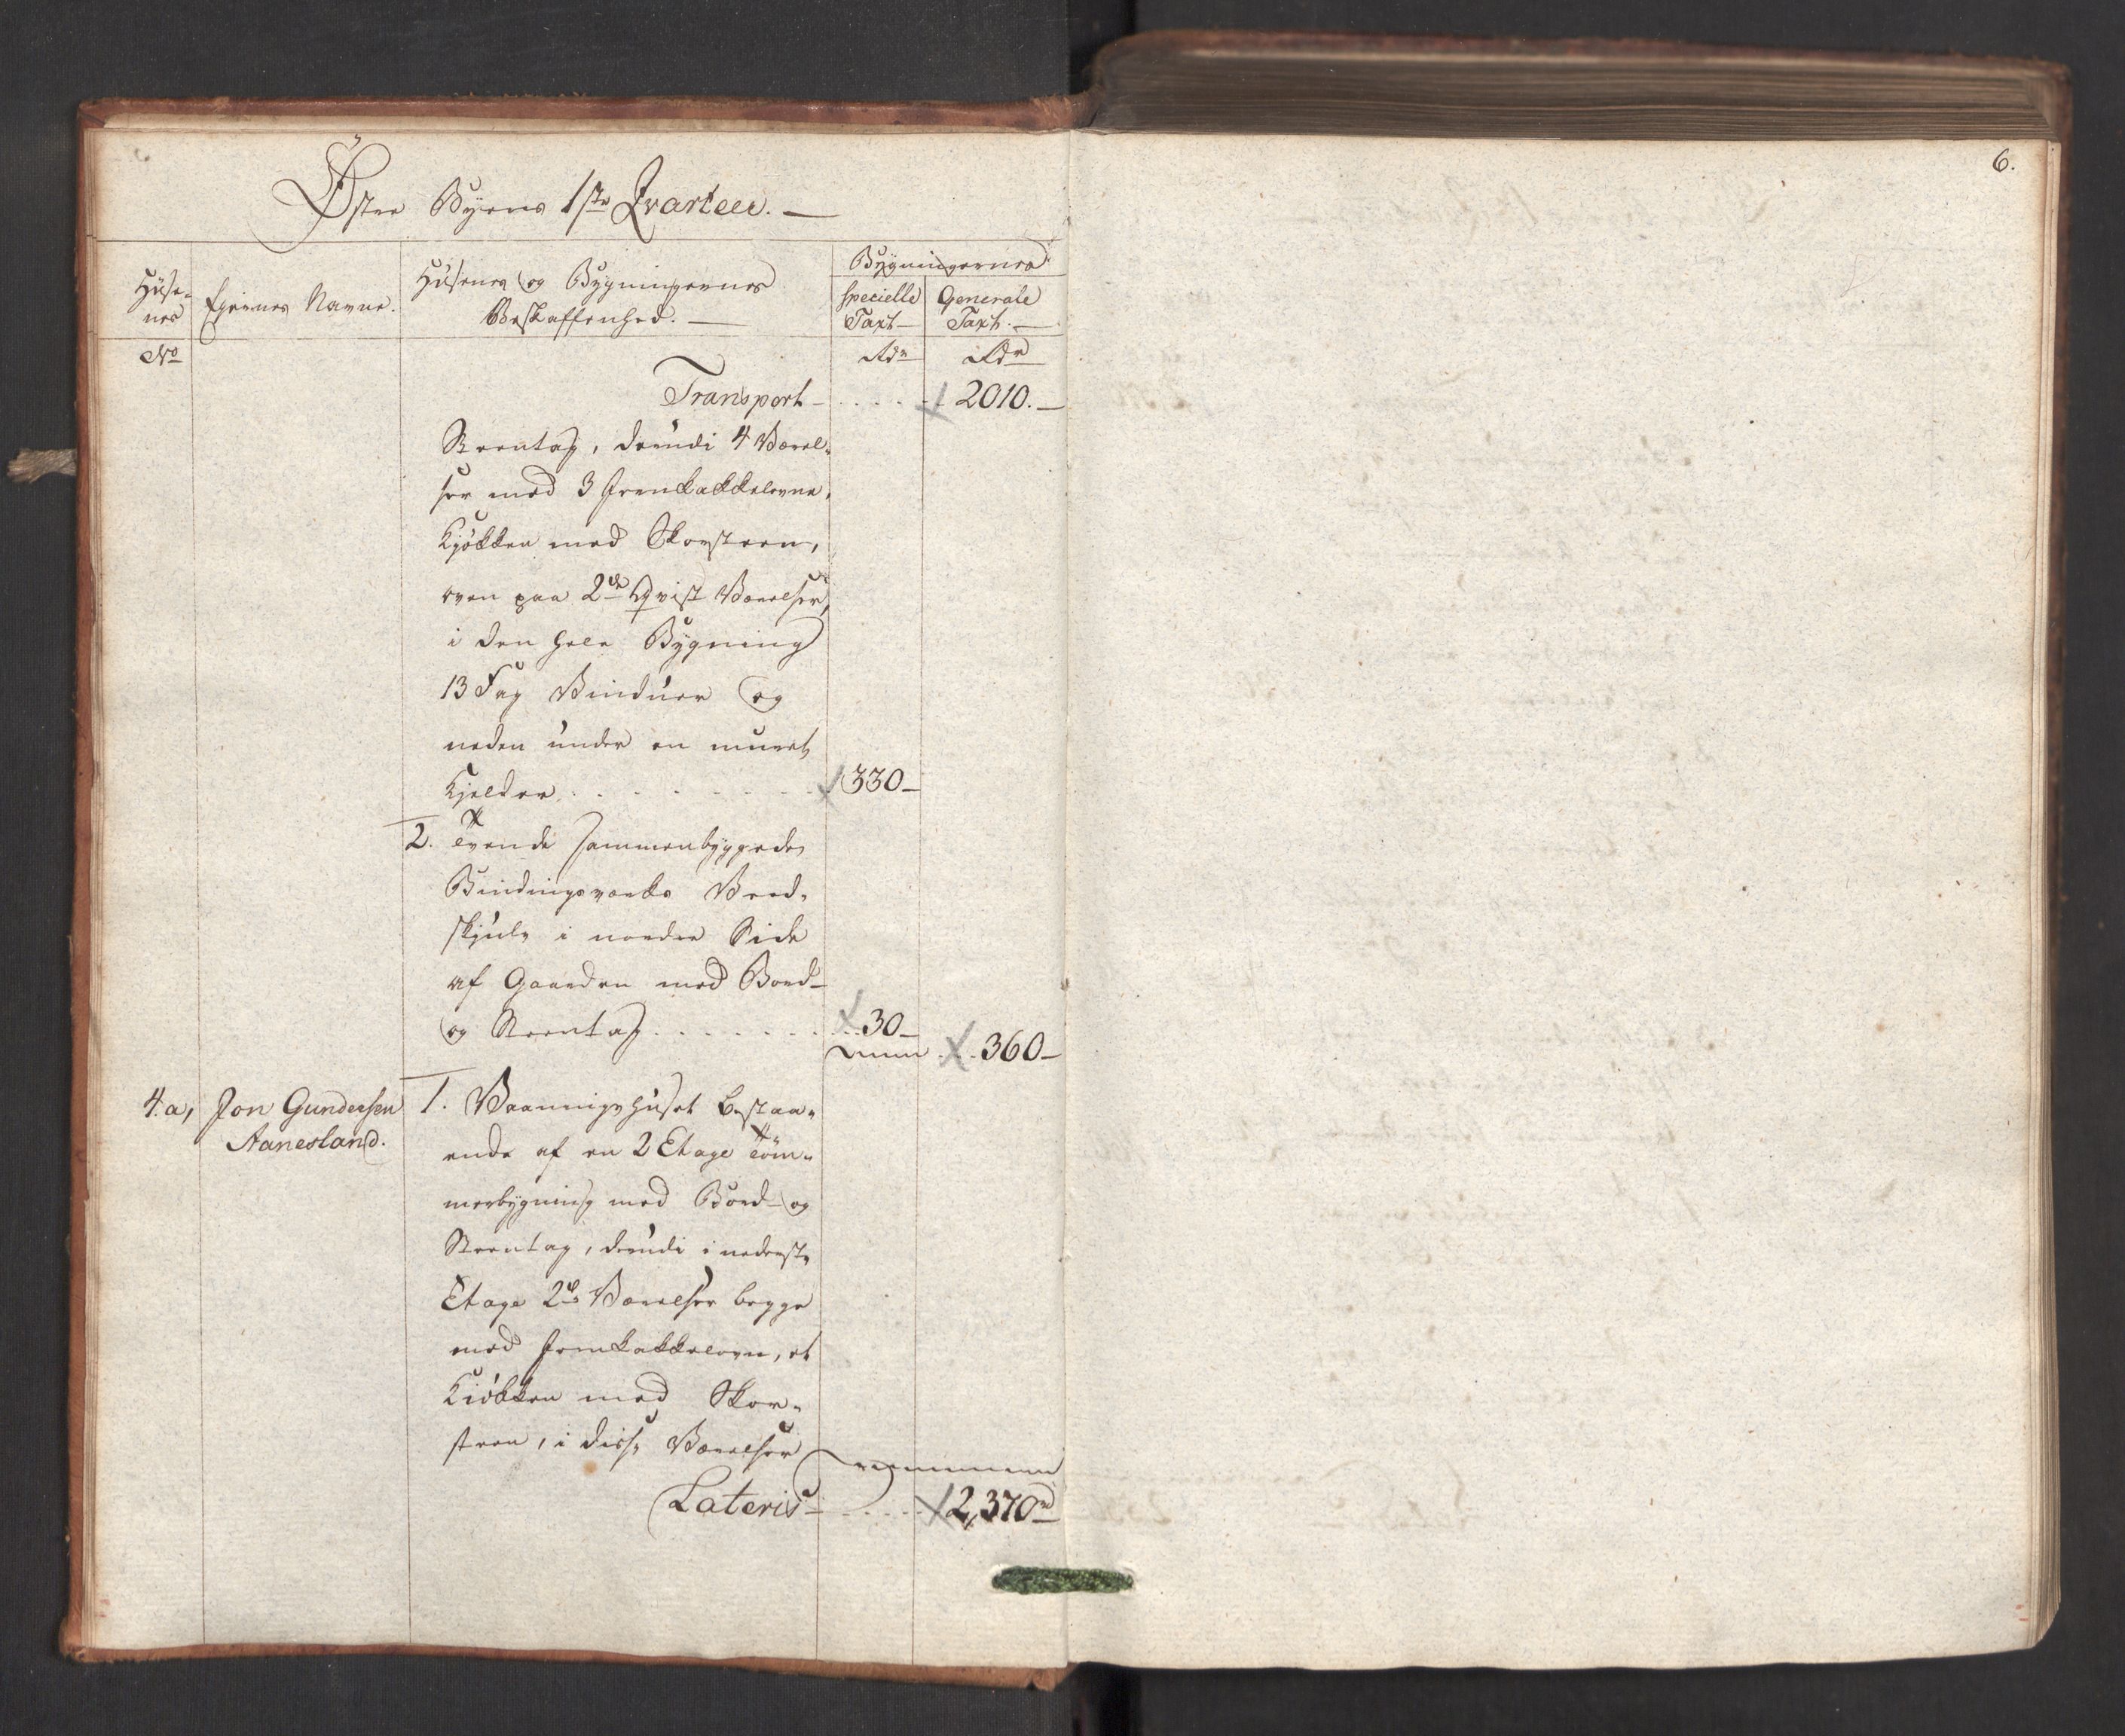 6.
Øster Byens 1ste Qvarteer. —
Huse-
nes
Eyernes Navne.
Husenes og Bygningernes
Beskaffenhed. —
Bygningernes
specielle
Taxt —
Generale
Taxt. —
No
Rdr
Rdr
Transport — . . . . . 2010. —
Steentag, derudi 4 Værel-
ser med 3 Jernkakkelovne,
Kjøkken med Skorsteen,
oven paa 2de Qvist Værelser,
i den hele Bygning
13 Fag Vinduer og
neden under en muret
Kjelder . . . . . . . 330 —
2. Tvende sammenbyggede
Bindingsværks Veed-
skjule i nordre Side
af Gaarden med Bord-
og Steentag . . . . . . . 30 —
. . 360 —
4. a, Jon Gundersen
Aanesland.
1. Vaaningshuset bestaa-
ende af en 2 Etage Töm-
merbygning med Bord- og
Steentag, derudi i nederste
Etage 2de Værelser begge
med Jernkakkelovn, et
Kiökken med Skor-
steen, i disse Værelser
Lateris — . . . . . 2,370rd